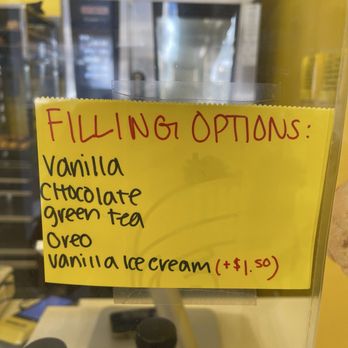 FILLING OPTIONS:
Vanilla
CHocolate
green tea
Oreo
vanilla Ice cream (+$1.50)